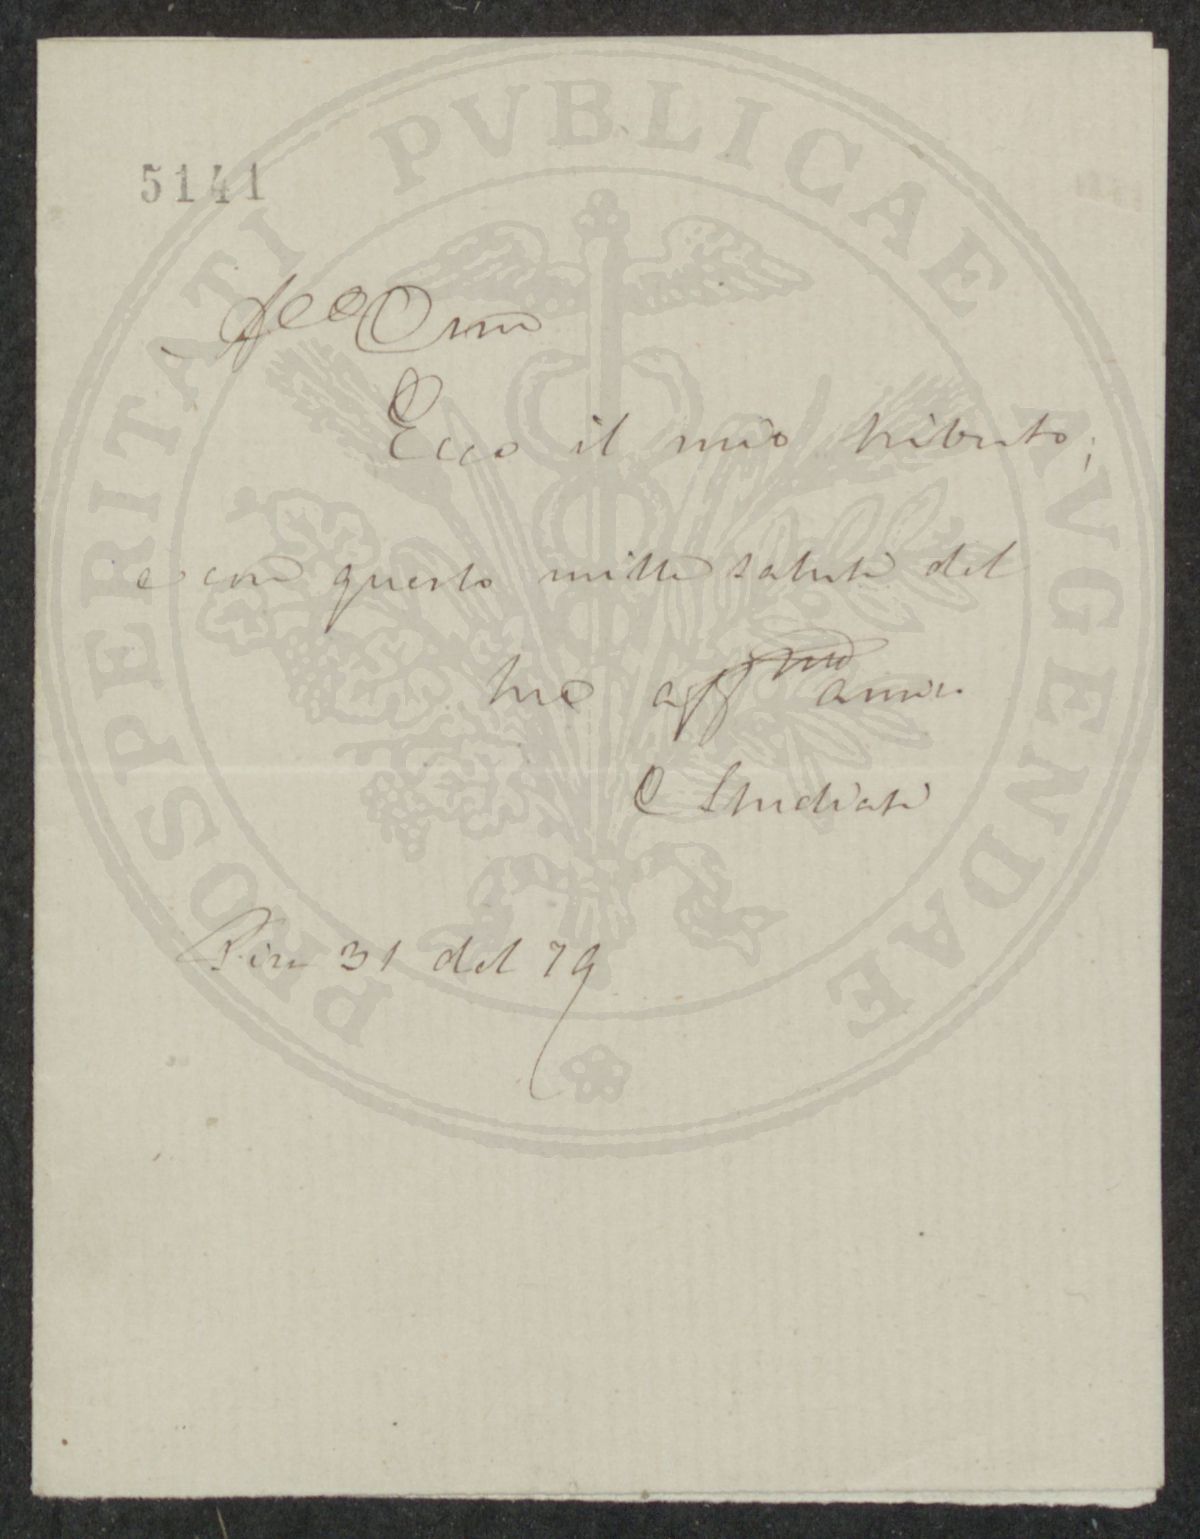 5141
Ecco il mio tributo;
e con questo mille saluti del
tuo aff.mo amico
C Studiati
Pisa 31 del 79
PROSPERITATI PVBLICAE AVGENDAE